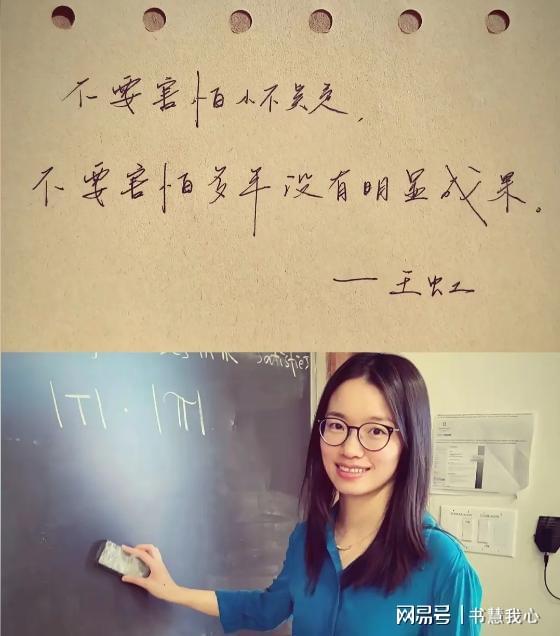 不要害怕小不
不要害怕多年没有明显成果。
— 王虹
satisfies
|T| · |𝕋|
网易号 | 书慧我心